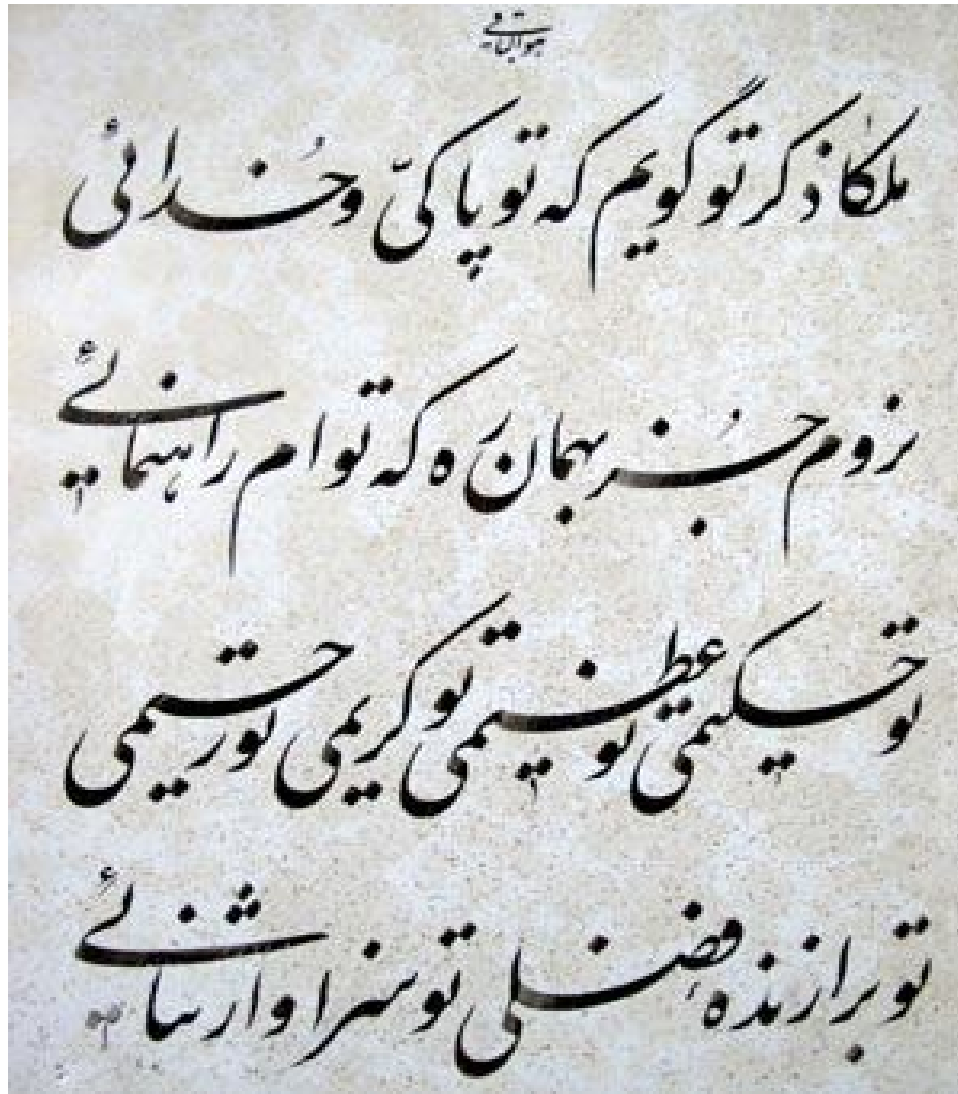 هو الباقی
ملکا ذکر تو گویم که تو پاکیّ و خُدائی
نروم جُز بهمان رَه که توام راهنمائی
تو حکیمی تو عظیمی تو کریمی تو رحیمی
تو برازندهٔ فضلی تو سزاوار ثنائی